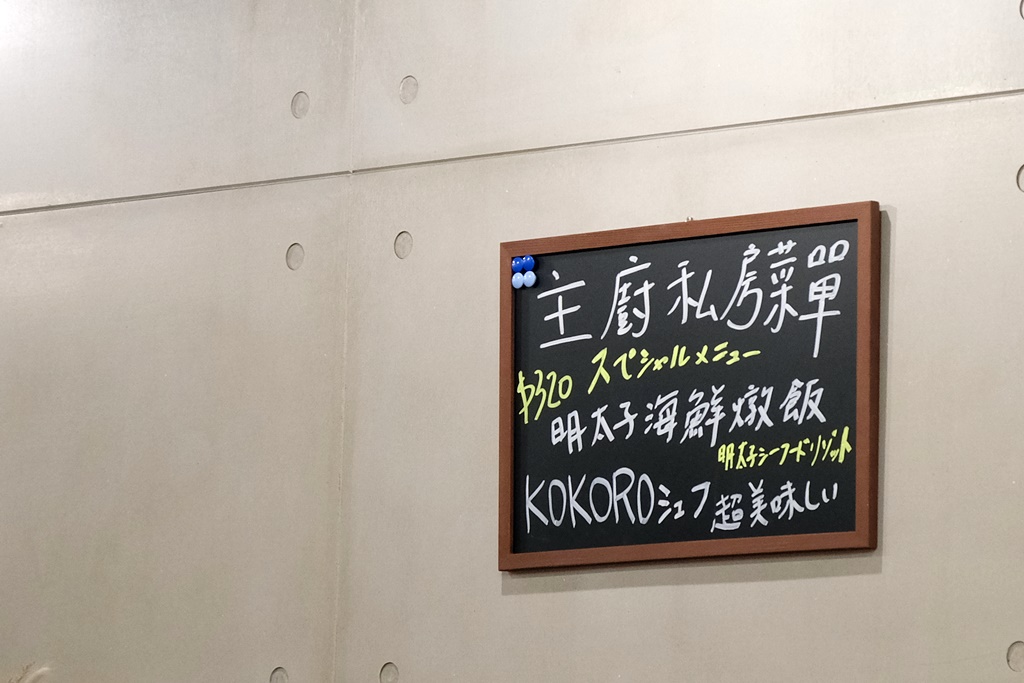 主廚私房菜單
スペシャルメニュー
$320
明太子海鮮燉飯
明太子シーフードリゾット
KOKOROシェフ超美味しい